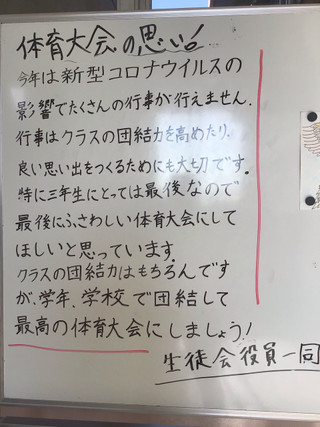 体育大会の思い!
今年は新型コロナウイルスの
影響でたくさんの行事が行えません.
行事はクラスの団結力を高めたり,
良い思い出をつくるためにも大切です.
特に三年生にとっては最後なので
最後にふさわしい体育大会にして
ほしいと思っています.
クラスの団結力はもちろんです
が、学年、学校で団結して
最高の体育大会にしましょう!
生徒会役員一同